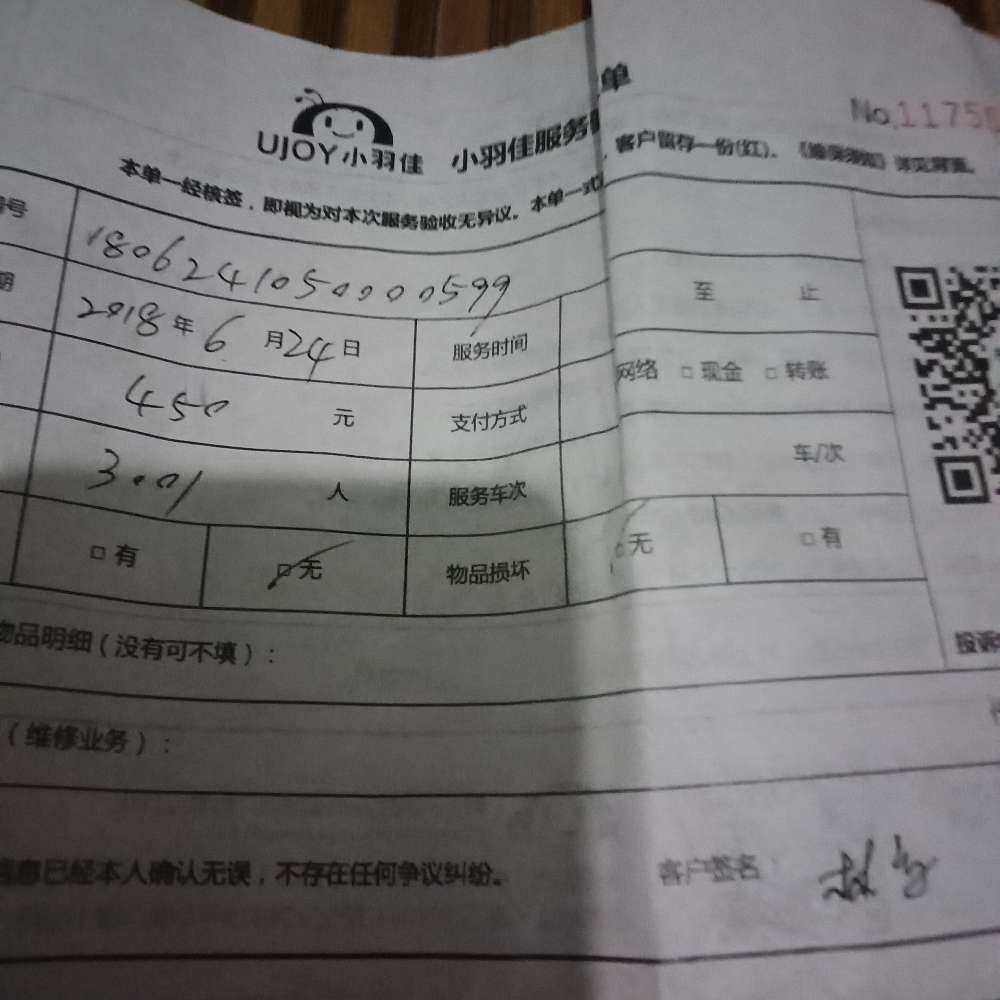 单
No.1175
UJOY小羽佳 小羽佳服务
本单一经核签，即视为对本次服务验收无异议。本单一式 客户留存一份(红)。
号
180624105000599
期 2018年6月24日 服务时间 至 止
450 元 支付方式 网络 □现金 □转账
3001 人 服务车次 车/次
□有 □无 物品损坏 □无 □有
物品明细（没有可不填）： 投诉
（维修业务）：
信息已经本人确认无误，不存在任何争议纠纷。 客户签名：